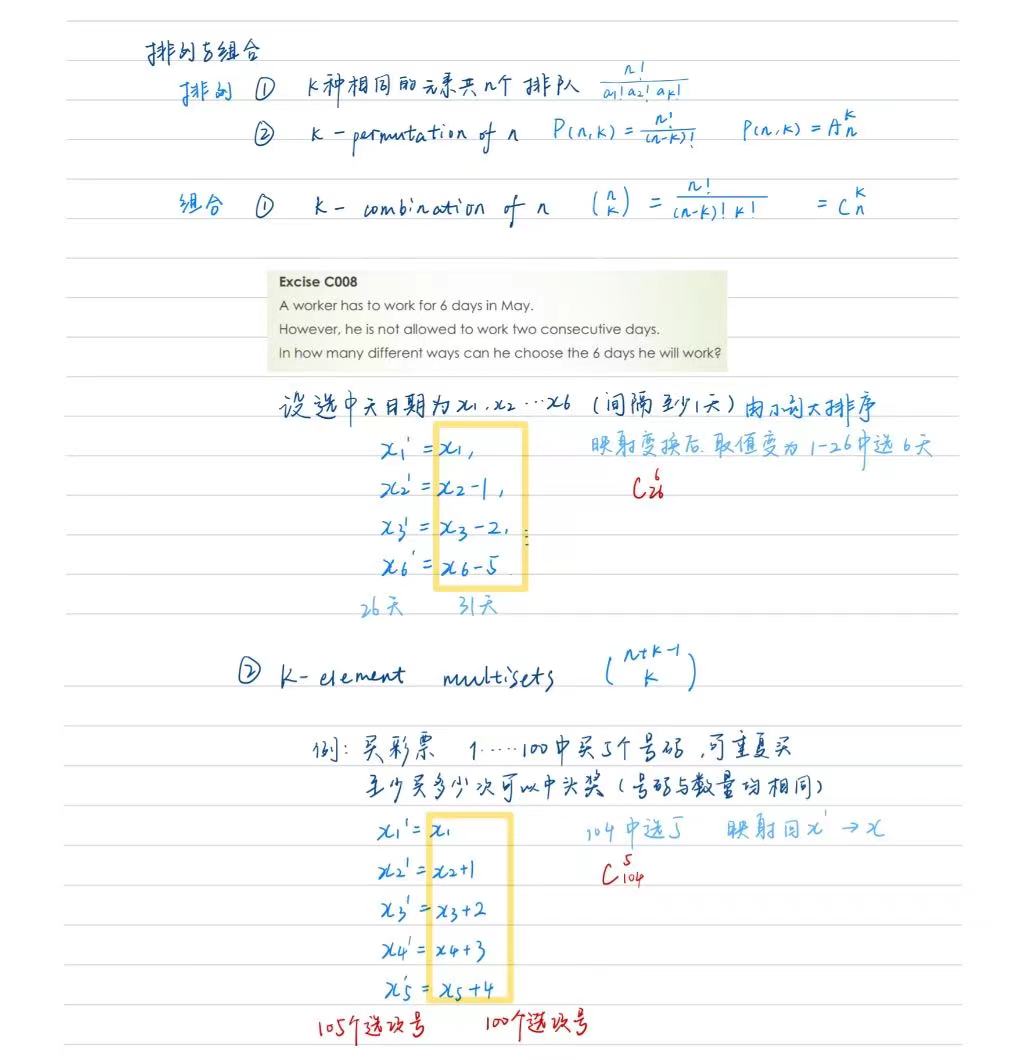 排列与组合
排列 ① K种相同的元素共n个 排队 n! / a1! a2! ak!
② K-permutation of n P(n,K) = n! / (n-K)! P(n,K) = A_n^K
组合 ① K-combination of n (n K) = n! / (n-K)! K! = C_n^K
Excise C008
A worker has to work for 6 days in May.
However, he is not allowed to work two consecutive days.
In how many different ways can he choose the 6 days he will work?
设选中天日期为 x1, x2 … x6 (间隔至少1天) 由小到大排序
x1' = x1, 映射变换后, 取值变为 1-26 中选 6天
x2' = x2-1, C_26^6
x3' = x3-2, ⋮
x6' = x6-5
26天 31天
② K-element multisets (n+K-1 K)
例: 买彩票 1……100中买5个号码, 可重复买
至少买多少次可以中头奖 (号码与数量均相同)
x1' = x1 104中选5 映射回 x' → x
x2' = x2+1 C_104^5
x3' = x3+2
x4' = x4+3
x5' = x5+4
105个选项号 100个选项号